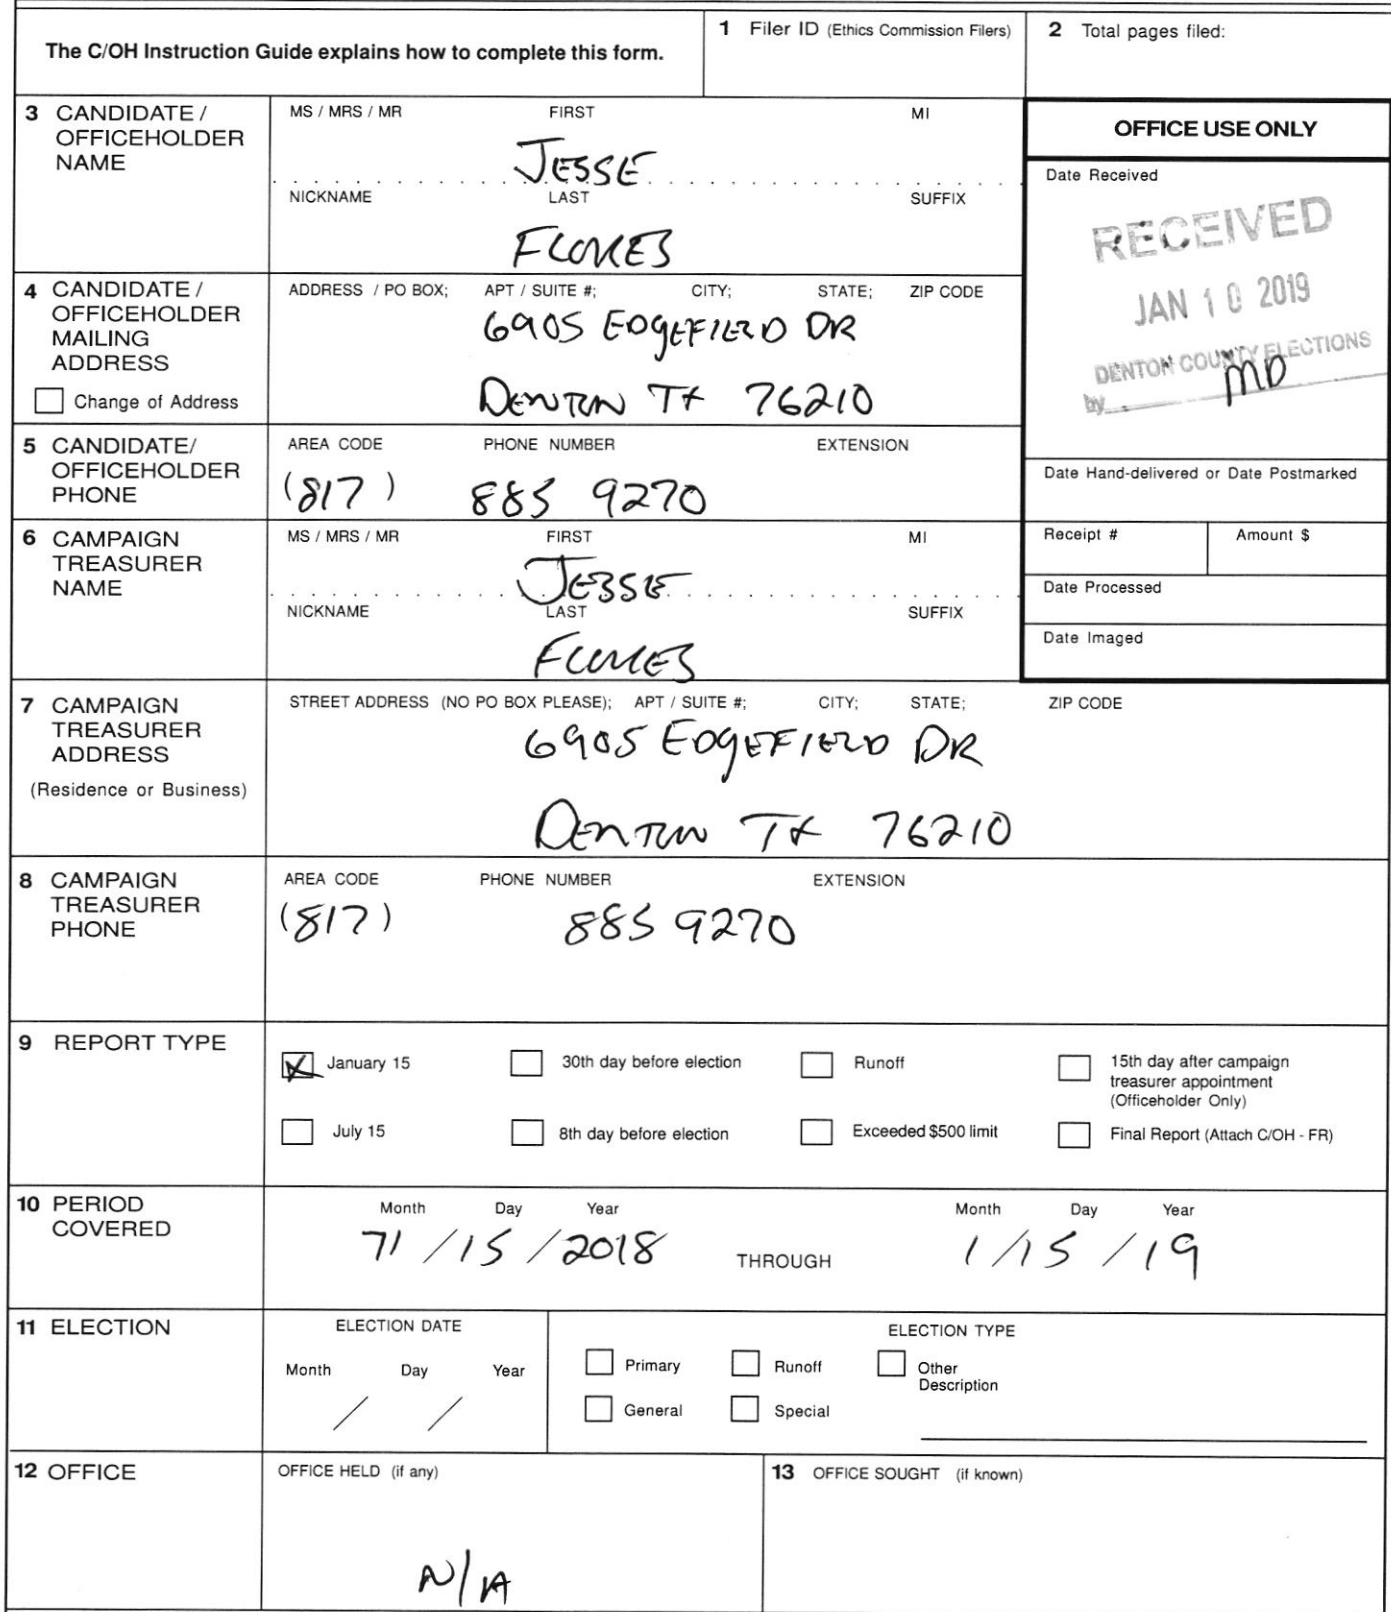 The C/OH Instruction Guide explains how to complete this form.
1 Filer ID (Ethics Commission Filers)
2 Total pages filed:
3 CANDIDATE / OFFICEHOLDER NAME
MS / MRS / MR FIRST MI
JESSE
NICKNAME LAST SUFFIX
FLORES
OFFICE USE ONLY
Date Received
RECEIVED
JAN 10 2019
DENTON COUNTY ELECTIONS
by MD
4 CANDIDATE / OFFICEHOLDER MAILING ADDRESS
Change of Address
ADDRESS / PO BOX; APT / SUITE #; CITY; STATE; ZIP CODE
6905 EDGEFIELD DR
DENTON TX 76210
5 CANDIDATE/ OFFICEHOLDER PHONE
AREA CODE PHONE NUMBER EXTENSION
(817) 885 9270
Date Hand-delivered or Date Postmarked
6 CAMPAIGN TREASURER NAME
MS / MRS / MR FIRST MI
JESSE
NICKNAME LAST SUFFIX
FLORES
Receipt # Amount $
Date Processed
Date Imaged
7 CAMPAIGN TREASURER ADDRESS
(Residence or Business)
STREET ADDRESS (NO PO BOX PLEASE); APT / SUITE #; CITY; STATE; ZIP CODE
6905 EDGEFIELD DR
DENTON TX 76210
8 CAMPAIGN TREASURER PHONE
AREA CODE PHONE NUMBER EXTENSION
(817) 885 9270
9 REPORT TYPE
January 15 30th day before election Runoff 15th day after campaign treasurer appointment (Officeholder Only)
July 15 8th day before election Exceeded $500 limit Final Report (Attach C/OH - FR)
10 PERIOD COVERED
Month Day Year Month Day Year
71 / 15 / 2018 THROUGH 1 / 15 / 19
11 ELECTION
ELECTION DATE
Month Day Year
/ /
ELECTION TYPE
Primary Runoff Other Description
General Special
12 OFFICE
OFFICE HELD (if any)
N/A
13 OFFICE SOUGHT (if known)